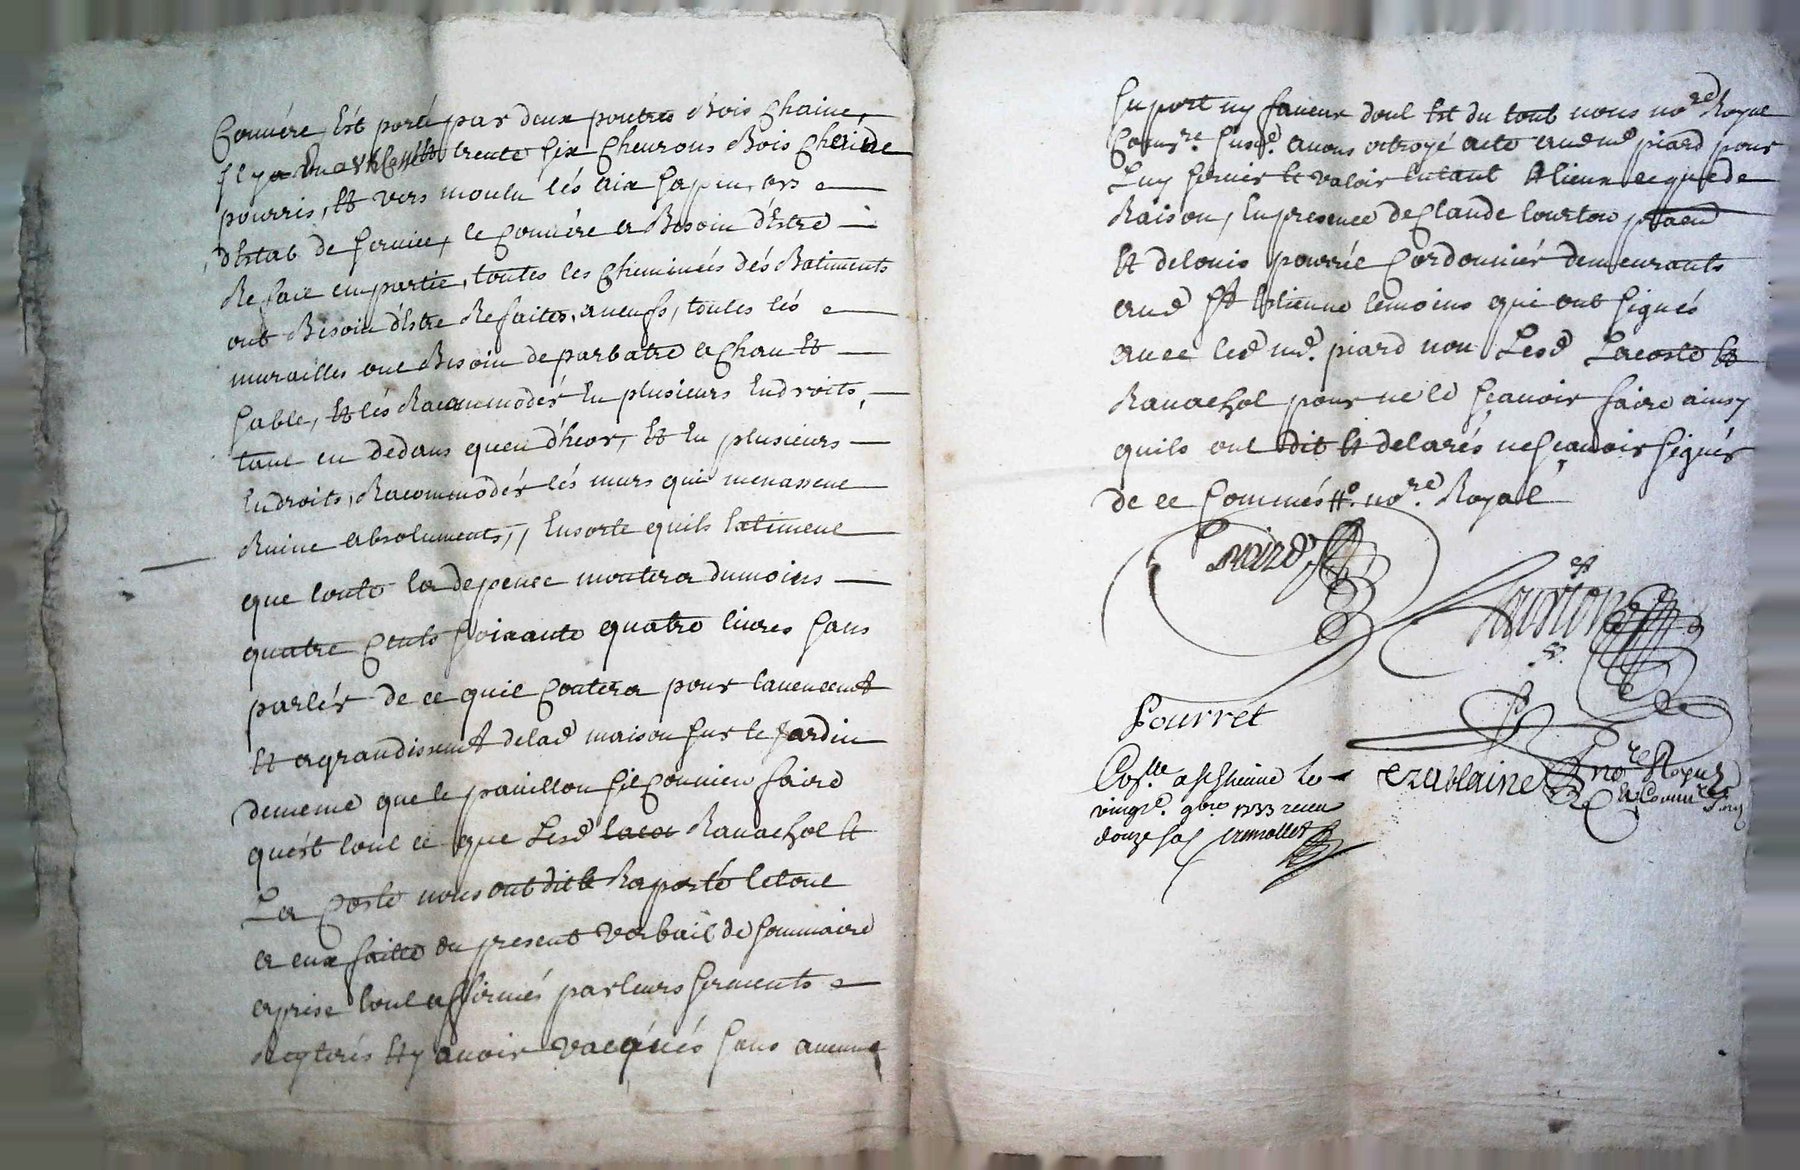 Couvére, Est porté par deux poutres Bois Chaine,
Il y a trente six Cheurons Bois Cheine
pourris, Et vers moulu lés aix sapin, ors
d'Estat de service, le Couvére a Besoin d'Estre
Refaie en partie, toutes les Cheminéés dés Batiments
ont Besoin d'Estre Refaites, a neufs, toutes lés
murailles ont Besoin de parbatre a Chau Et
sable, Et lés Racommodér En plusieurs Endroits,
tant en dedans quen d'heor, Et En plusieurs
Endroits, Racommodér lés murs qui menassent
Ruine absoluments, Ensorte quils Estiment
que toute la depence montera dumoins
quatre Cents soixante quatre livres sans
parlér de ce quil Coutera pour
Et agrandissemt delad maison sur le Jardin
dememe que le pavillon sil Convien faire
quést tout ce que Lesd Ravachol Et
La Coste nous ont dit & Raporté letout
a eux faitte du present verbail de sommaire
aprise tout affirmés par leurs serments
Et y avoir vacquéés sans aucune
suport ny faveur dont Est du tout nous nore Royal
Comre susd. avons octroyé acte aud md piard pour
Luy servir Et valoir Entant Alieux ce que de
Raison, En presence de Claude tourton
Et de louis pourrét Cordonniér demeurants
aud St Etienne temoins qui ont signés
avec led md. piard non Lesd Lacoste Et
Ravachol pour ne le sçavoir faire ainsy
quils ont dit Et delarés ne sçavoir signér
de ce Commés Ho. nore. Royal
piard
tourton
Pourret
Coslle a st Etienne le
vingt 9bre 1733 receu
douze sols
Ezablaine nore Royal